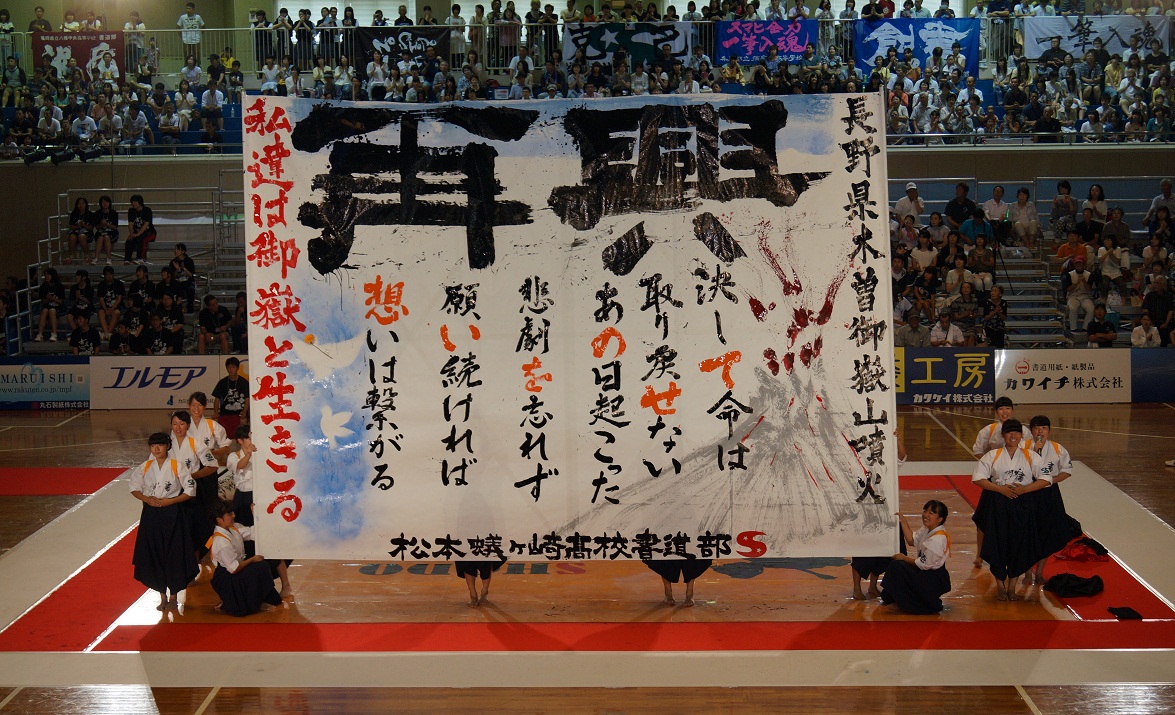 長野県木曽御嶽山噴火
再興
決して命は
取り戻せない
あの日起こった
悲劇を忘れず
願い続ければ
想いは繋がる
私達は御嶽と生きる
松本蟻ヶ崎高校書道部S
No Shodo
スマヒ全力
一筆入魂
一筆入魂
MARUISHI
丸石製紙株式会社
エルモア
工房
カクケイ株式会社
書道用紙・紙製品
カワイチ株式会社